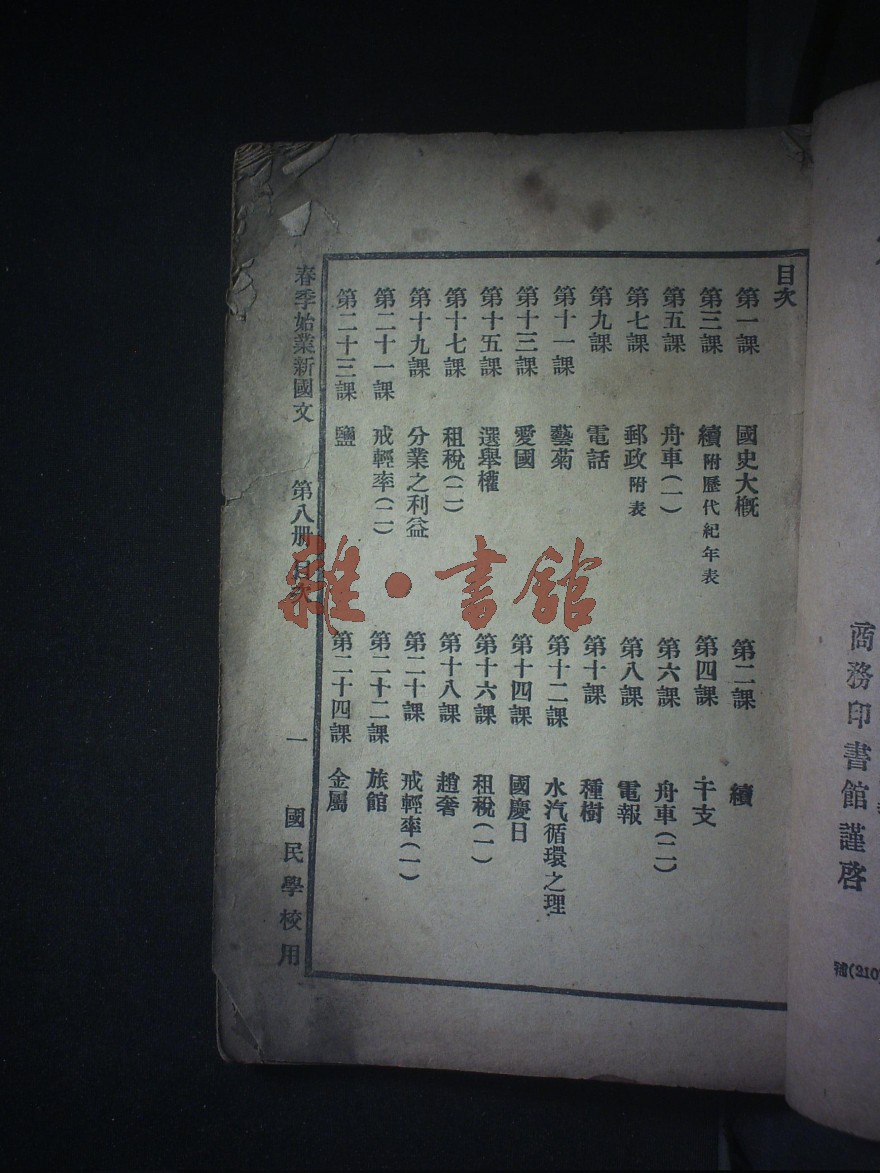 商務印書館謹啓
補(210
目次
第一課 國史大概 第二課 續
第三課 續附歷代紀年表 第四課 干支
第五課 舟車(一) 第六課 舟車(二)
第七課 郵政附表 第八課 電報
第九課 電話 第十課 種樹
第十一課 藝菊 第十二課 水汽循環之理
第十三課 愛國 第十四課 國慶日
第十五課 選舉權 第十六課 租稅(一)
第十七課 租稅(二) 第十八課 趙奢
第十九課 分業之利益 第二十課 戒輕率(一)
第二十一課 戒輕率(二) 第二十二課 旅館
第二十三課 鹽 第二十四課 金屬
春季始業新國文 第八册 目次 一 國民學校用
雜·書館